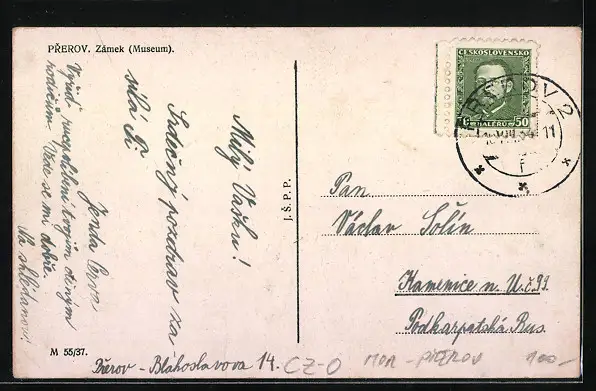 PŘEROV. Zámek (Museum).
Milý Vašku!
Srdečný pozdrav za
sílá Ti
Jenda
Vyřiď
rodičům. Vede se mi dobře.
Na shledanou!
J.Š.P.P.
ČESKOSLOVENSKO
HALÉŘŮ 50
PŘEROV 2
11
Pan
Václav Solín
Kamenice n. U. č. 99
Podkarpatská Rus.
M 55/37.
Přerov - Bláhoslavova 14.
CZ-O
MOR - PŘEROV
100-